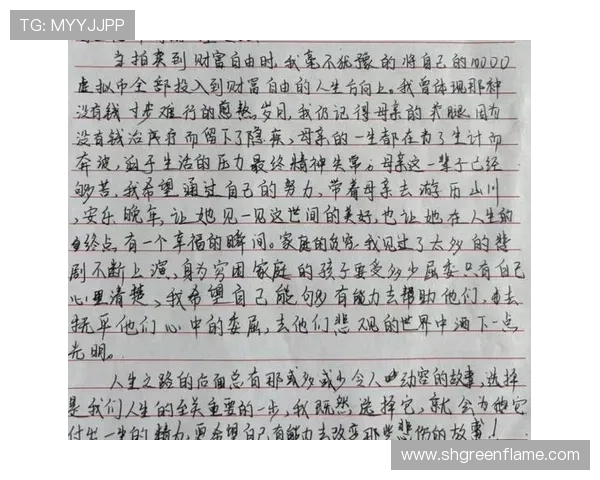 TG: MYYJJPP
当拍卖到财富自由时,我毫不犹豫的将自己的10000
虚拟币全部投入到财富自由的人生方向上。我曾体现那种
没有钱寸步难行的岁月,我仍记得母亲的腿因为
没有钱治疗而留下了隐疾、母亲的一生都在为了生计而
奔波,迫于生活的压力最终精神失常。母亲这一辈子已经
够苦,我希望通过自己的努力,带着母亲去游历山川
,安乐晚年,让她见一见这世间的美好,也让她在人生的
终点有一个幸福的瞬间。家庭的贫穷,我见过了太多的悲
剧不断上演,身为穷困家庭的孩子要受多少屈委只有自己
心里清楚、我希望自己能够有能力去帮助他们,去
抚平他们心中的委屈,去他们悲观的世界中洒下一点
光明。
人生之路的后面总有那或多或少令人动容的故事,选择
是我们人生的至关重要的一步,我既然选择它,就会为他
付出一生的精力,更希望自己有能力去改变那些悲伤的故事!
www.shgreenflame.com